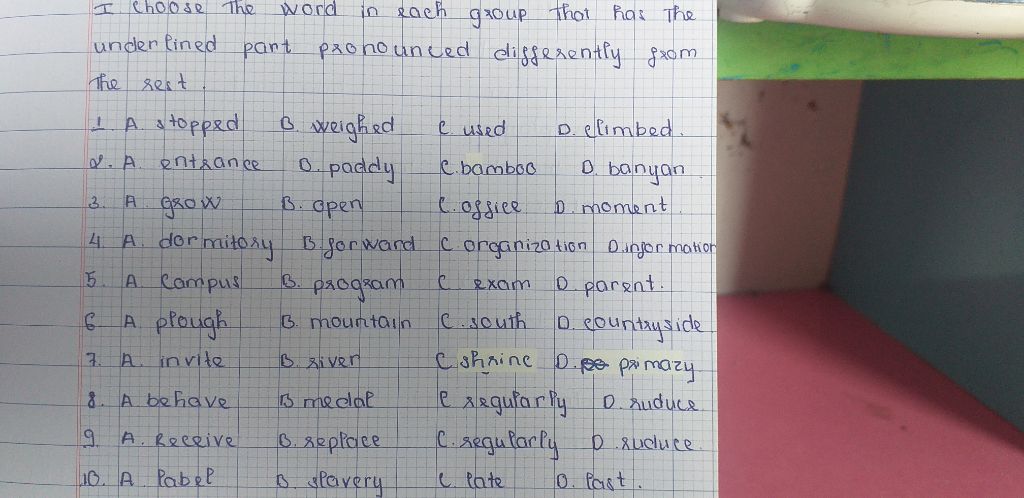 I choose the word in each group that has the
underlined part pronounced differently from
the rest.
1. A. stopped B. weighed C. used D. climbed.
2. A. entrance B. paddy C. bamboo D. banyan
3. A. grow B. open C. office D. moment.
4 A. dormitory B. forward C. organization D. information
5. A. Campus B. program C exam D. parent.
6 A. plough B. mountain C. south D. countryside
7. A. invite B. river C shrine D. primazy
8. A behave B medal C regularly D. ruduce
9. A. Receive B. replace C. regularly D ruduce.
10. A. label B. slavery C. late D. last.